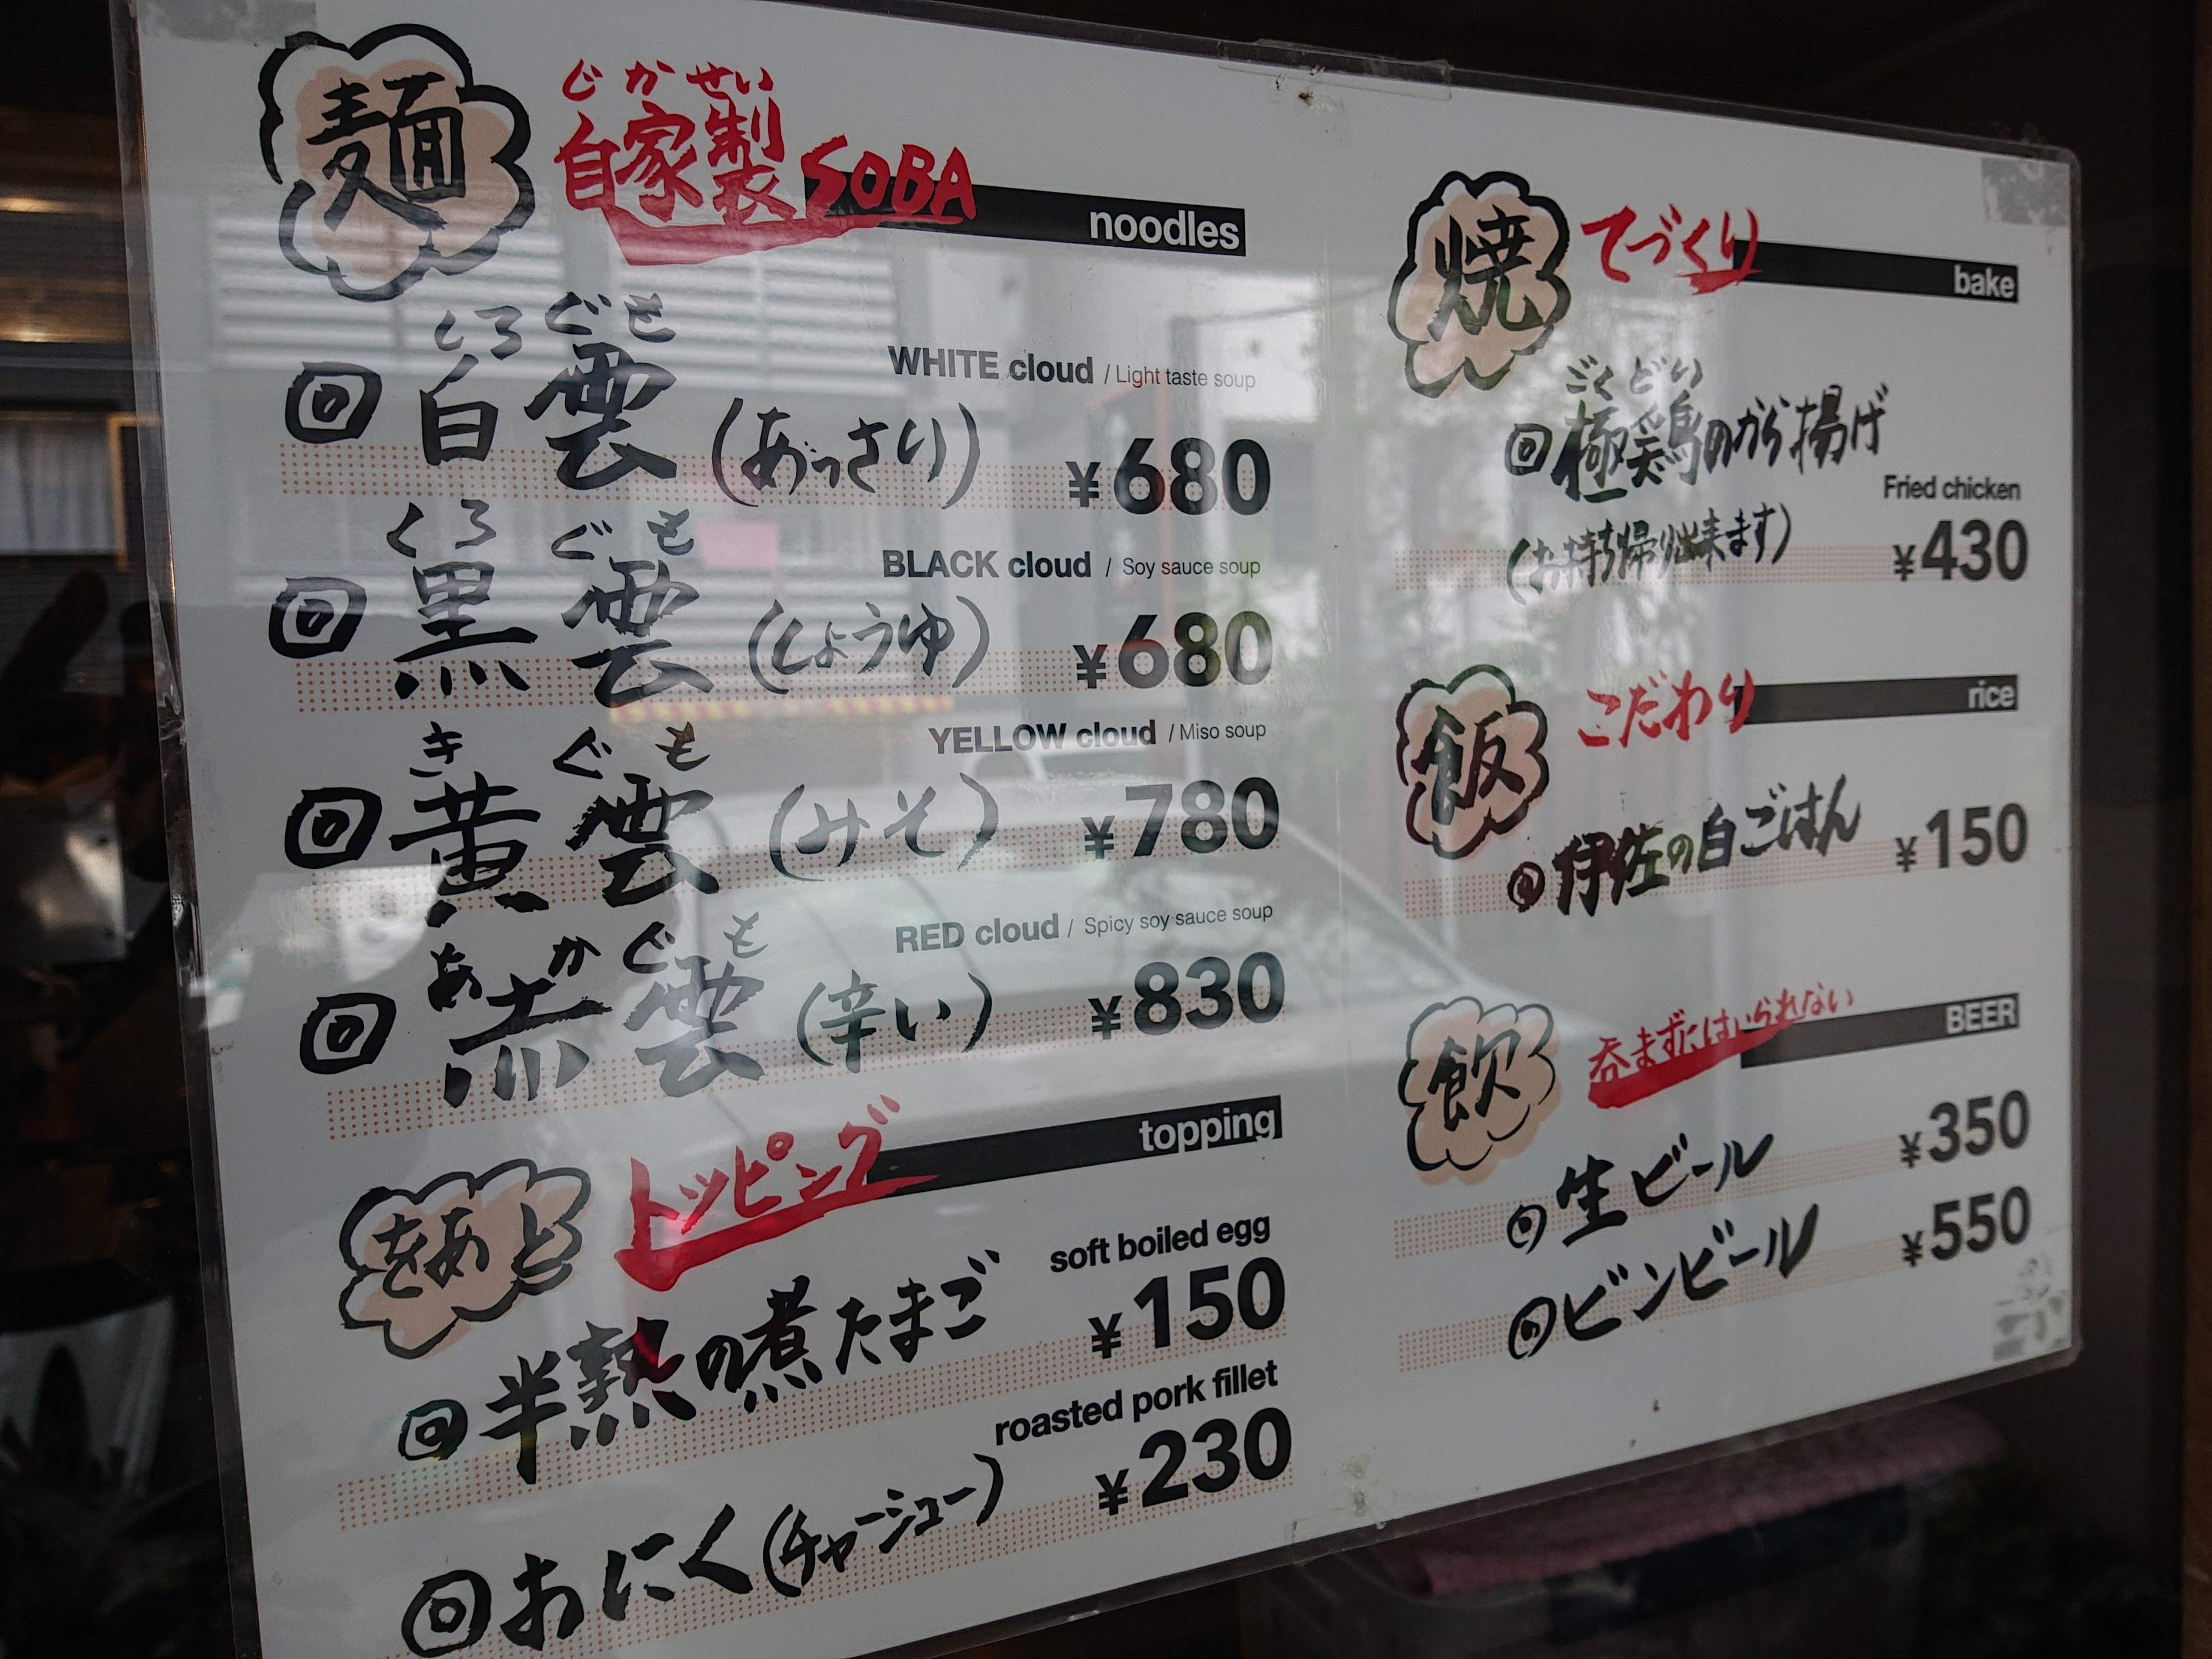 麺
じかせい
自家製SOBA
noodles
しろぐも
白雲(あっさり)
WHITE cloud / Light taste soup
¥680
くろぐも
黒雲(しょうゆ)
BLACK cloud / Soy sauce soup
¥680
きぐも
黄雲(みそ)
YELLOW cloud / Miso soup
¥780
あかぐも
赤雲(辛い)
RED cloud / Spicy soy sauce soup
¥830
あとを
トッピング
topping
半熟の煮たまご
soft boiled egg
¥150
おにく(チャーシュー)
roasted pork fillet
¥230
焼
てづくり
bake
ごくどり
極鶏のから揚げ
Fried chicken
(お持ち帰り出来ます)
¥430
飯
こだわり
rice
伊佐の白ごはん
¥150
飲
呑まずにはいられない
BEER
生ビール
¥350
ビンビール
¥550